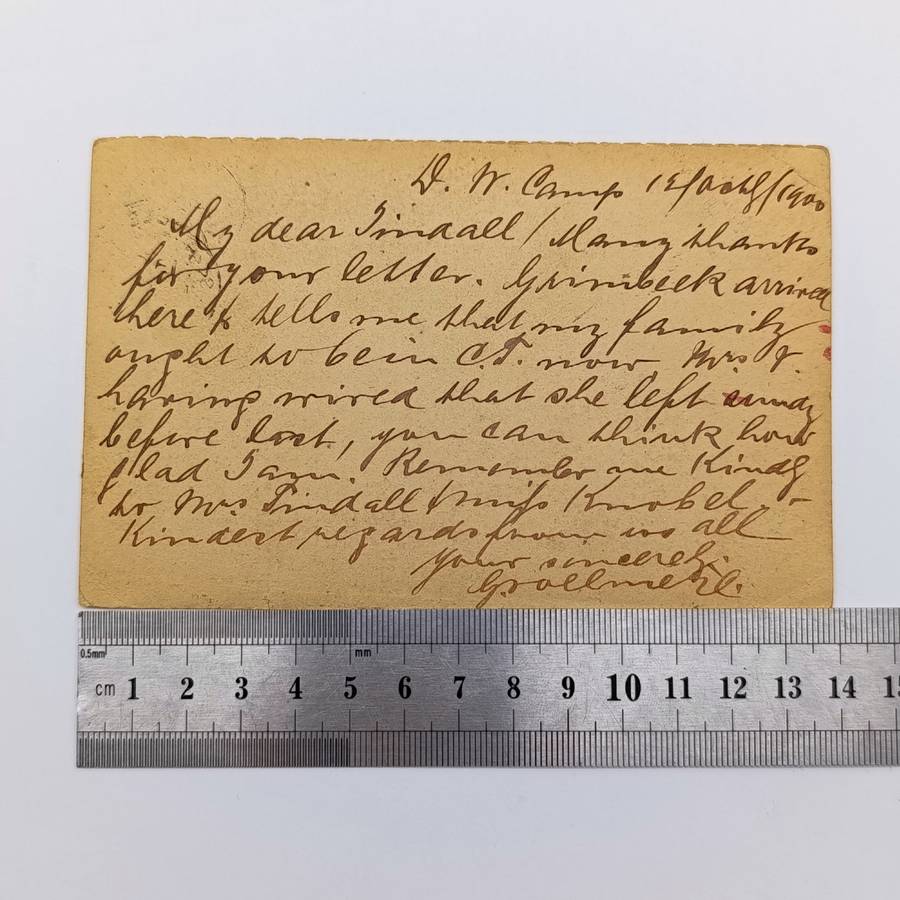 D. W. Camp 12/Oct/1900
My dear Tindall / Many thanks
for your letter. Grimbeek arrived
here & tells me that my family
ought to be in C.T. now. Mrs G.
having wired that she left
before last, you can think how
glad I am. Remember me Kindly
to Mrs Tindall & Miss Knobel. -
Kindest regards from us all
Your sincerely
0.5mm mm
cm 1 2 3 4 5 6 7 8 9 10 11 12 13 14